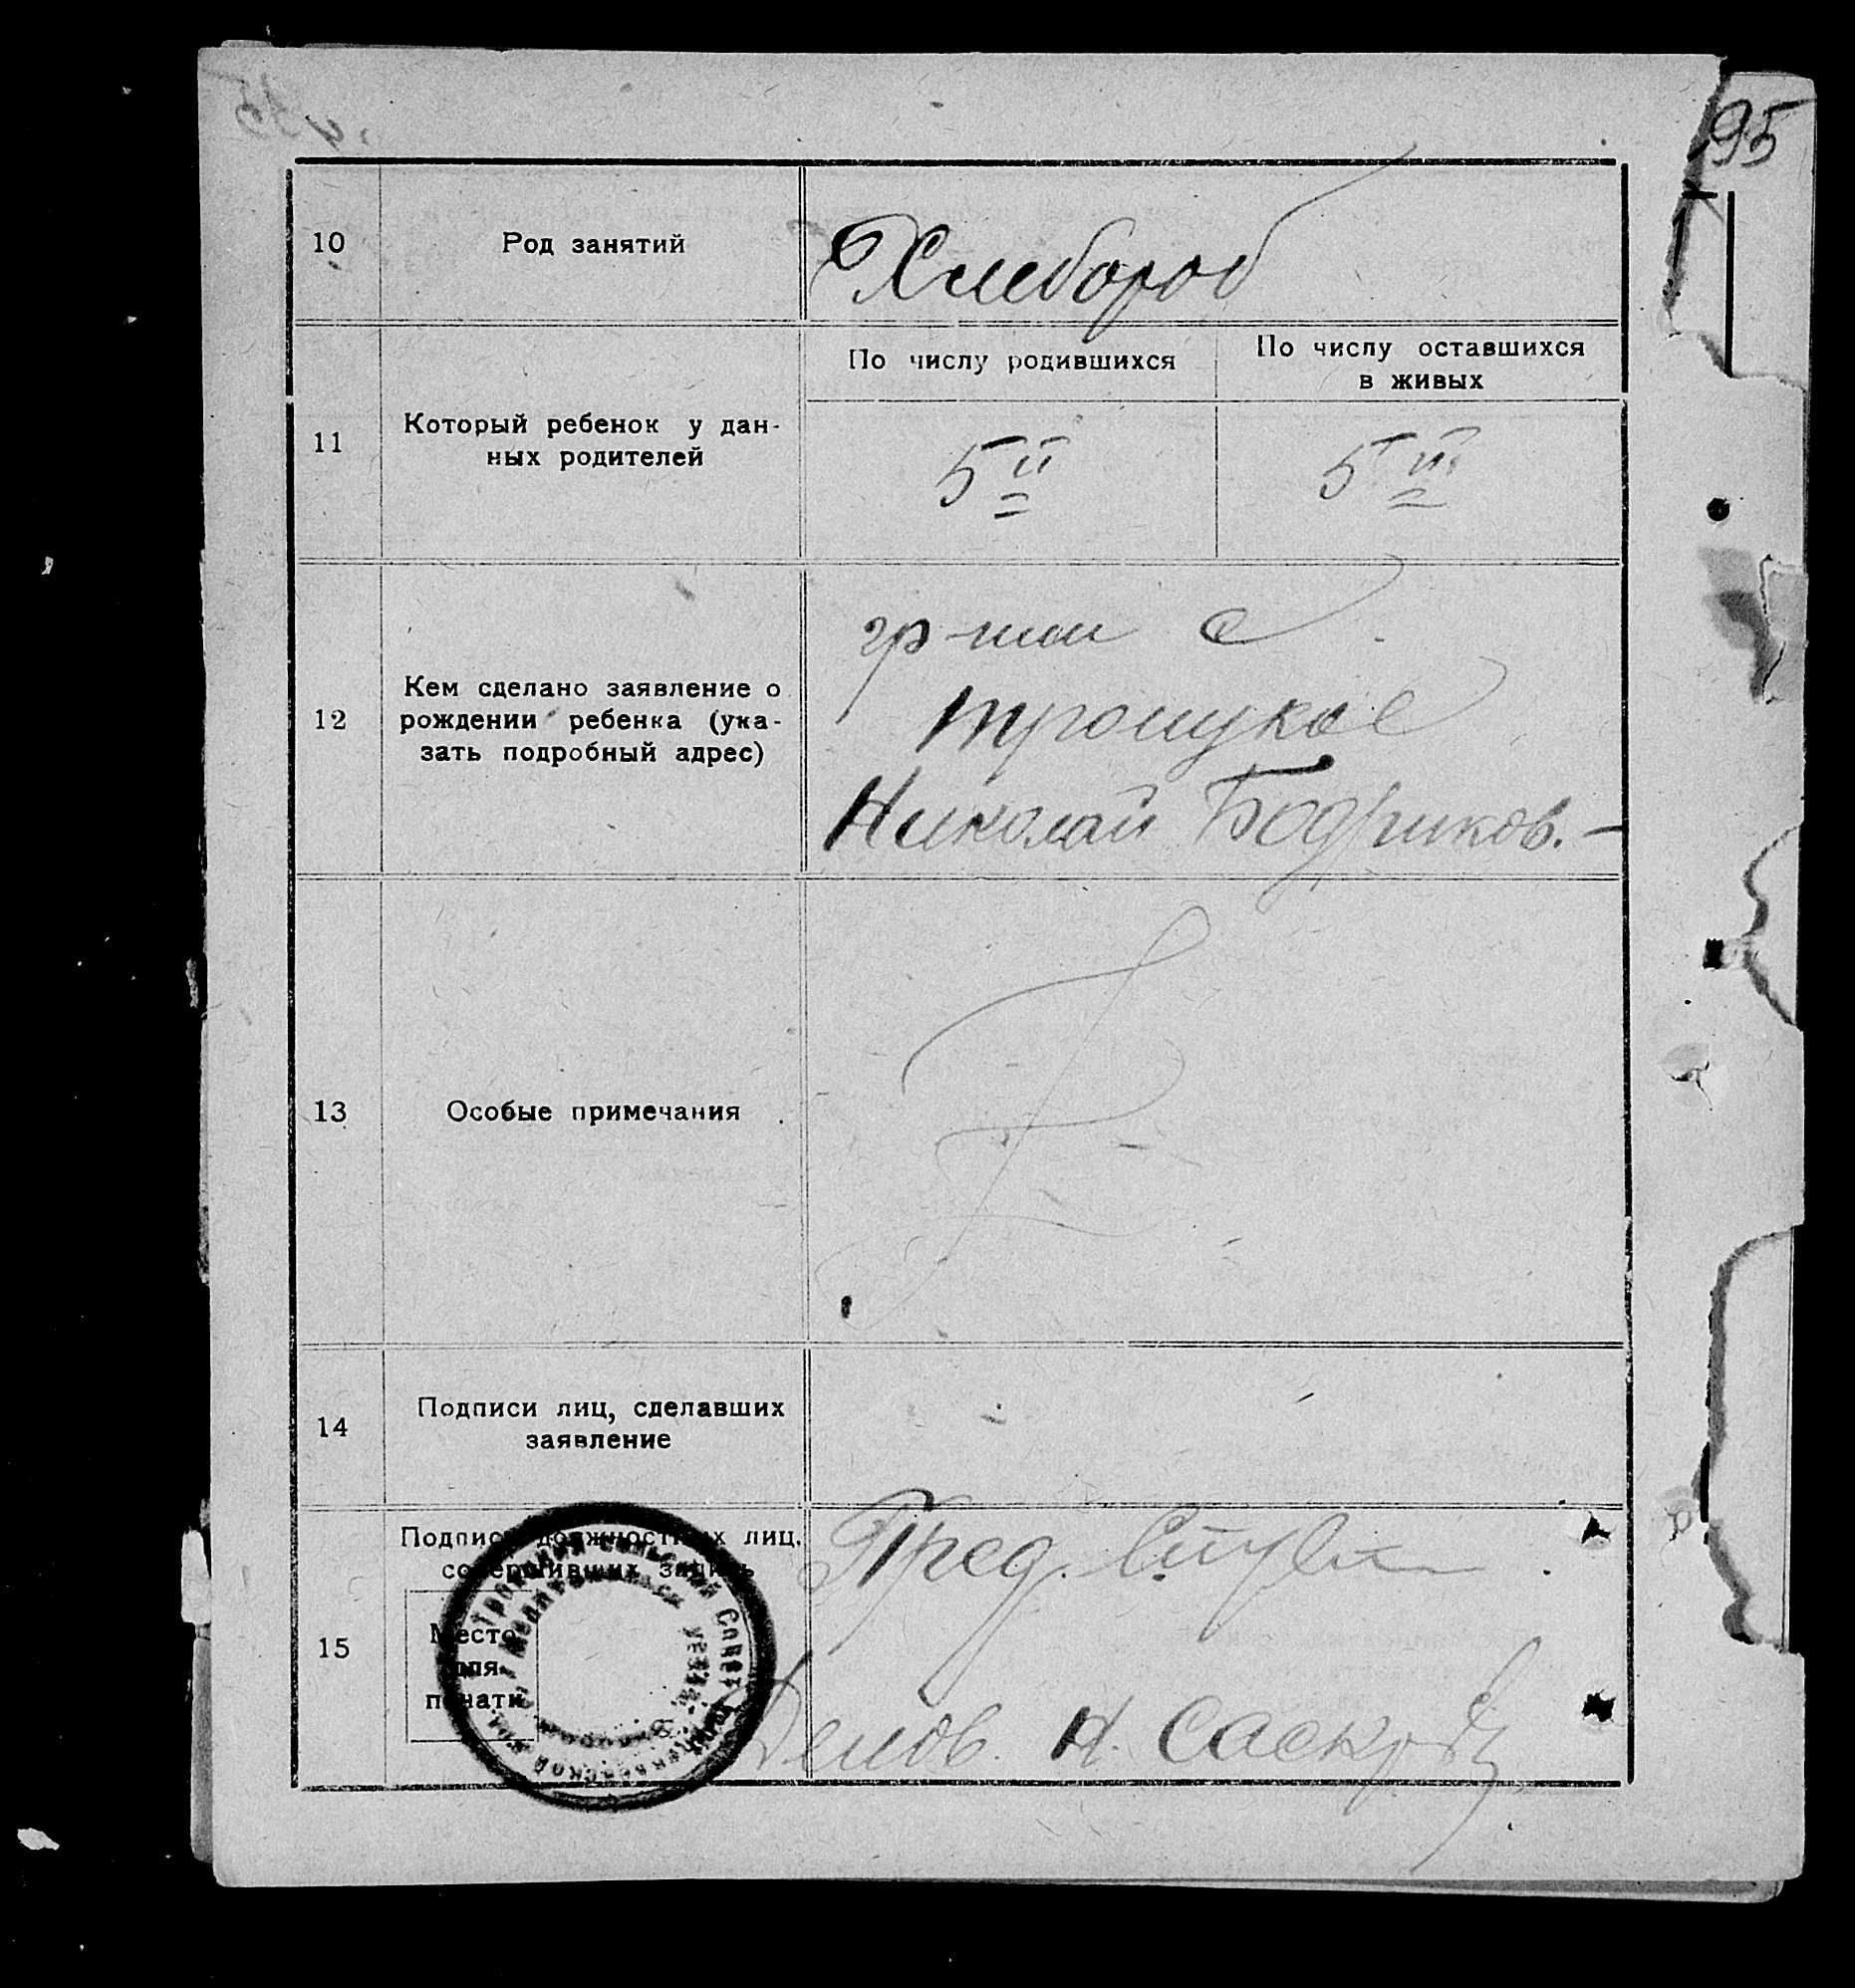 95
10
Род занятий
Хлебороб
11
Который ребенок у дан-
ных родителей
По числу родившихся
По числу оставшихся
в живых
5й
5й
12
Кем сделано заявление о
рождении ребенка (ука-
зать подробный адрес)
гр-ном с
Троицкое
Николай Бодриков.
13
Особые примечания
14
Подписи лиц, сделавших
заявление
15
Подписи должностных лиц,
совершивших запись
Место
для
печати
Пред.
Делов. Н.